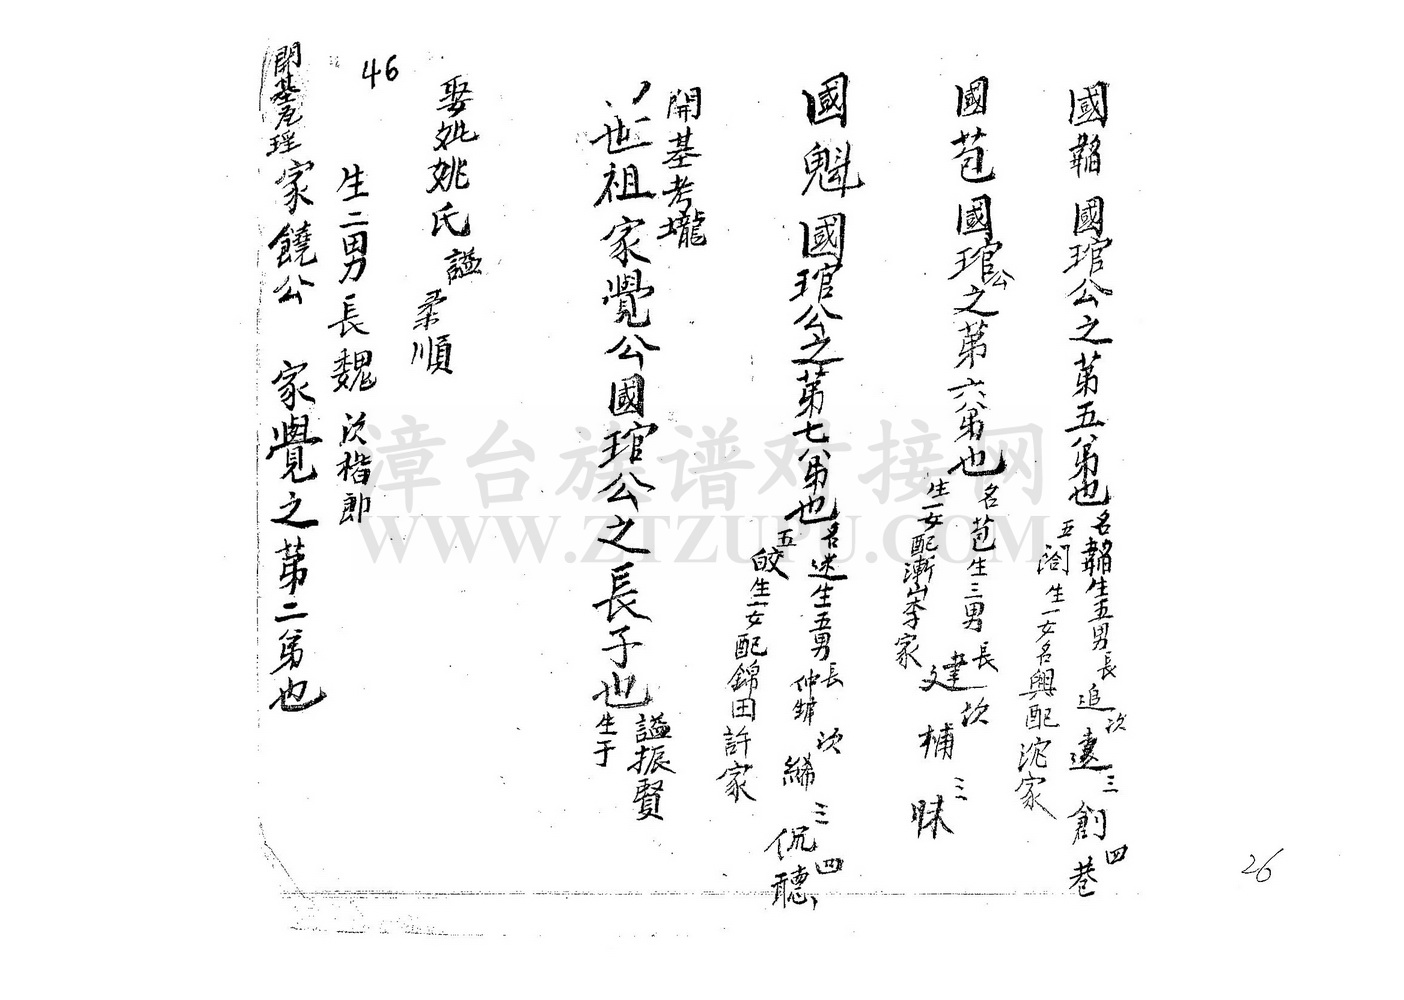 國韜 國琯公之第五公弟也 名韜生五男 長追 次遠 三創 四巷
五閤 生一女名興配沈家
國苞 國琯公之第六公弟也 名苞生三男 長建 次補 三昧
生一女配漸山李家
國魁 國琯公之第七公弟也 名迷生五男 長仲 次絺 三侃 四聽
五皎 生一女配錦田許家
開基考壠
世祖家覺公國琯公之長子也 謚振賢
生于
娶妣姚氏 謚 柔順
46
生二男 長魏 次楷郎
開基 家饒公 家覺之第二弟也
26
漳台族谱对接网
WWW.ZTZUPU.COM